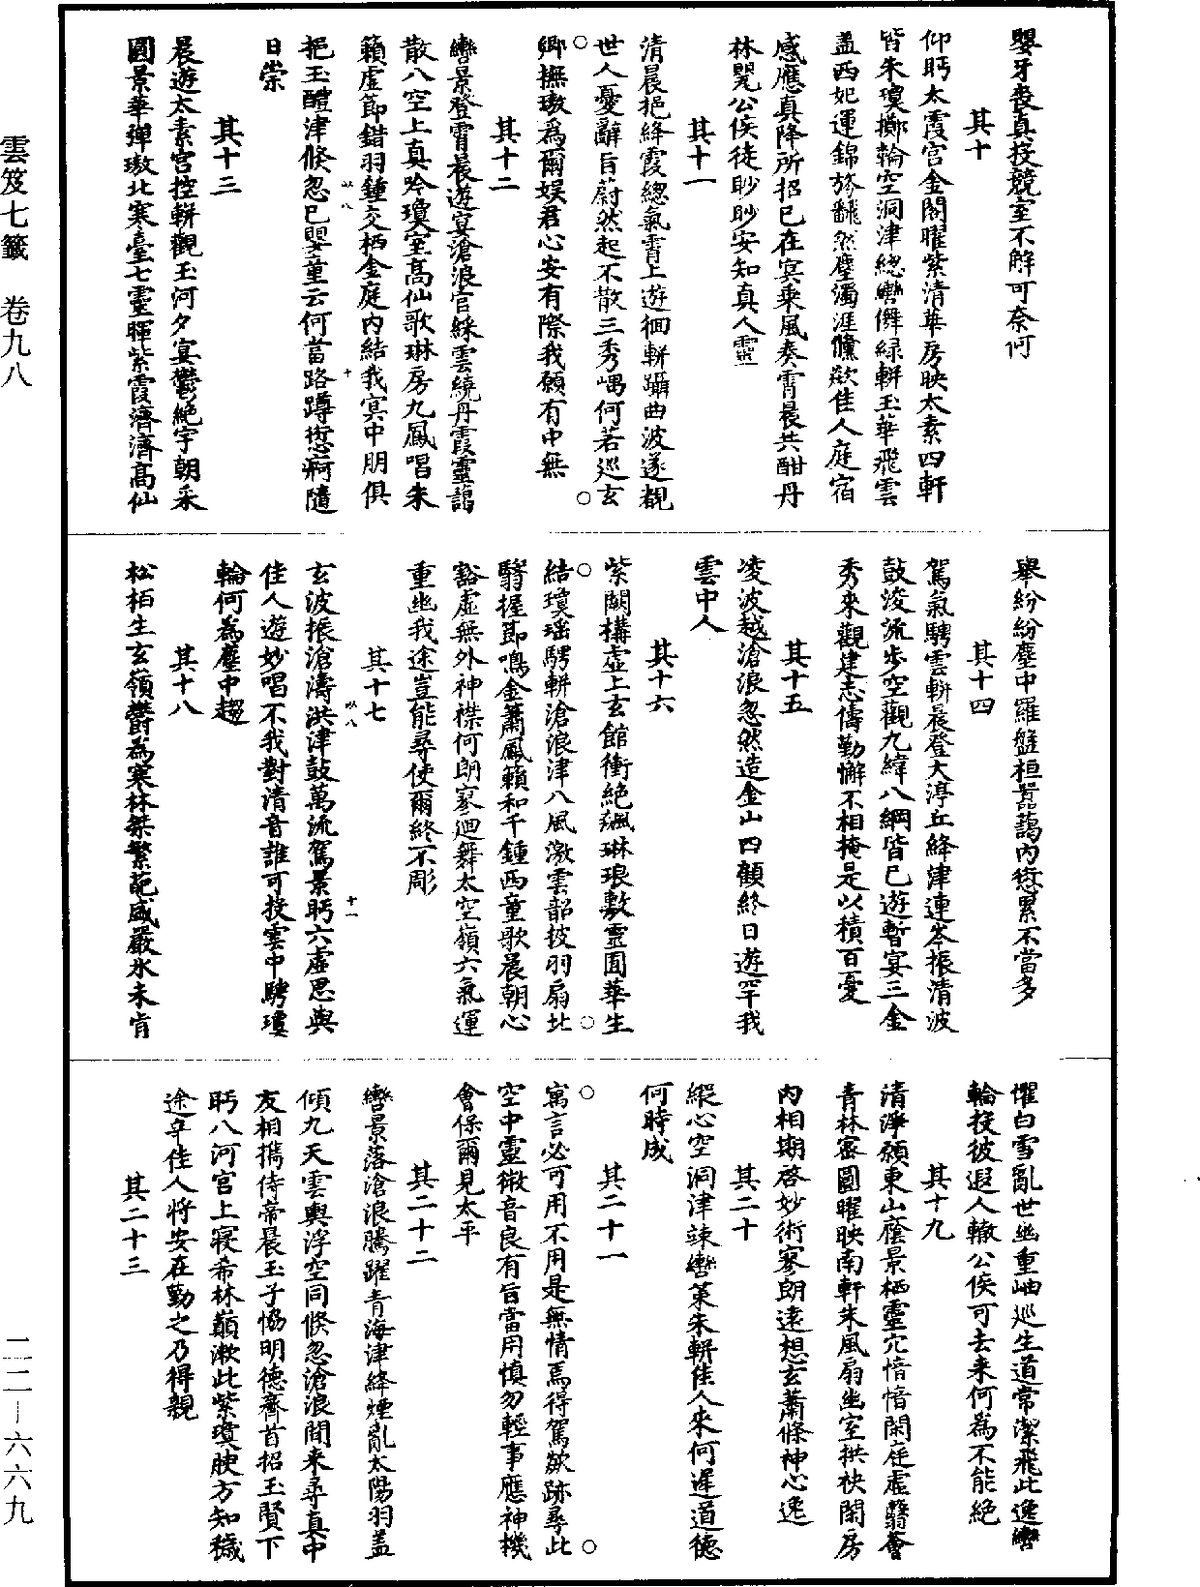 嬰牙喪真投競室不解可奈何
其十
仰眄太霞宮金閣曜紫清華房映太素四軒
皆朱瓊擲輪空洞津總轡儛綠輧玉華飛雲
盖西妃運錦旍翻然塵濁涯儵欻佳人庭宿
感應真降所招已在冥乘風奏霄晨共酣丹
林罌公侯徒眇眇安知真人靈
其十一
清晨挹絳霞總氣霄上遊徊輧躡曲波遂覩
世人憂辭旨蔚然起不散三秀嵎何若巡玄
卿撫璈為爾娱君心安有際我願有中無
其十二
轡景登霄晨遊宴滄浪宮綵雲繞丹霞靈藹
散八空上真吟瓊室高仙歌琳房九鳳唱朱
籟虛節錯羽鍾交栖金庭內結我冥中朋俱
挹玉醴津倏忽已嬰童云何當路蹲愆痾隨
日崇
其十三
晨遊太素宮控輧觀玉河夕宴鬱絕宇朝采
圓景華彈璈北寒臺七靈暉紫霞濟濟高仙
舉紛紛塵中羅盤桓嚚藹內愆累不當多
其十四
駕氣騁雲輧晨登大渟丘絳津連岑振清波
鼓浚流步空觀九緯八綱皆已遊暫宴三金
秀來觀建志儔勤懈不相掩是以積百憂
其十五
凌波越滄浪忽然造金山四顧終日遊罕我
雲中人
其十六
紫闕構虛上玄館衝絕飈琳琅敷靈囿華生
結瓊瑶騁輧滄浪津八風激雲韶披羽扇北
翳握節鳴金簫鳳籟和千鍾西童歌晨朝心
豁虛無外神襟何朗寥迴舞太空嶺六氣運
重幽我途豈能尋使爾終不彫
其十七
玄波振滄濤洪津鼓萬流駕景眄六虛思與
佳人遊妙唱不我對清音誰可投雲中騁瓊
輪何為塵中趨
其十八
松栢生玄嶺鬱為寒林桀繁葩盛嚴氷未肯
懼白雪亂世幽重岫巡生道常潔飛此逸轡
輪投彼遐人轍公侯可去來何為不能絕
其十九
清淨願東山蔭景栖靈穴愔愔閑庭虛翳薈
青林密圓曜映南軒朱風扇幽室拱袂閑房
內相期啓妙術寥朗遠想玄蕭條神心逸
其二十
縱心空洞津竦轡策朱輧佳人來何遲道德
何時成
其二十一
寓言必可用不用是無情焉得駕欻跡尋此
空中靈微音良有旨當用慎勿輕事應神機
會保爾見太平
其二十二
轡景落滄浪騰躍青海津絳煙亂太陽羽盖
傾九天雲輿浮空同倏忽滄浪間來尋真中
友相攜侍帝晨玉子恊明德齊首招玉賢下
眄八河宮上寢希林巔漱此紫瓊腴方知穢
途辛佳人將安在勤之乃得親
其二十三
雲笈七籤　卷九八
二二－六六九